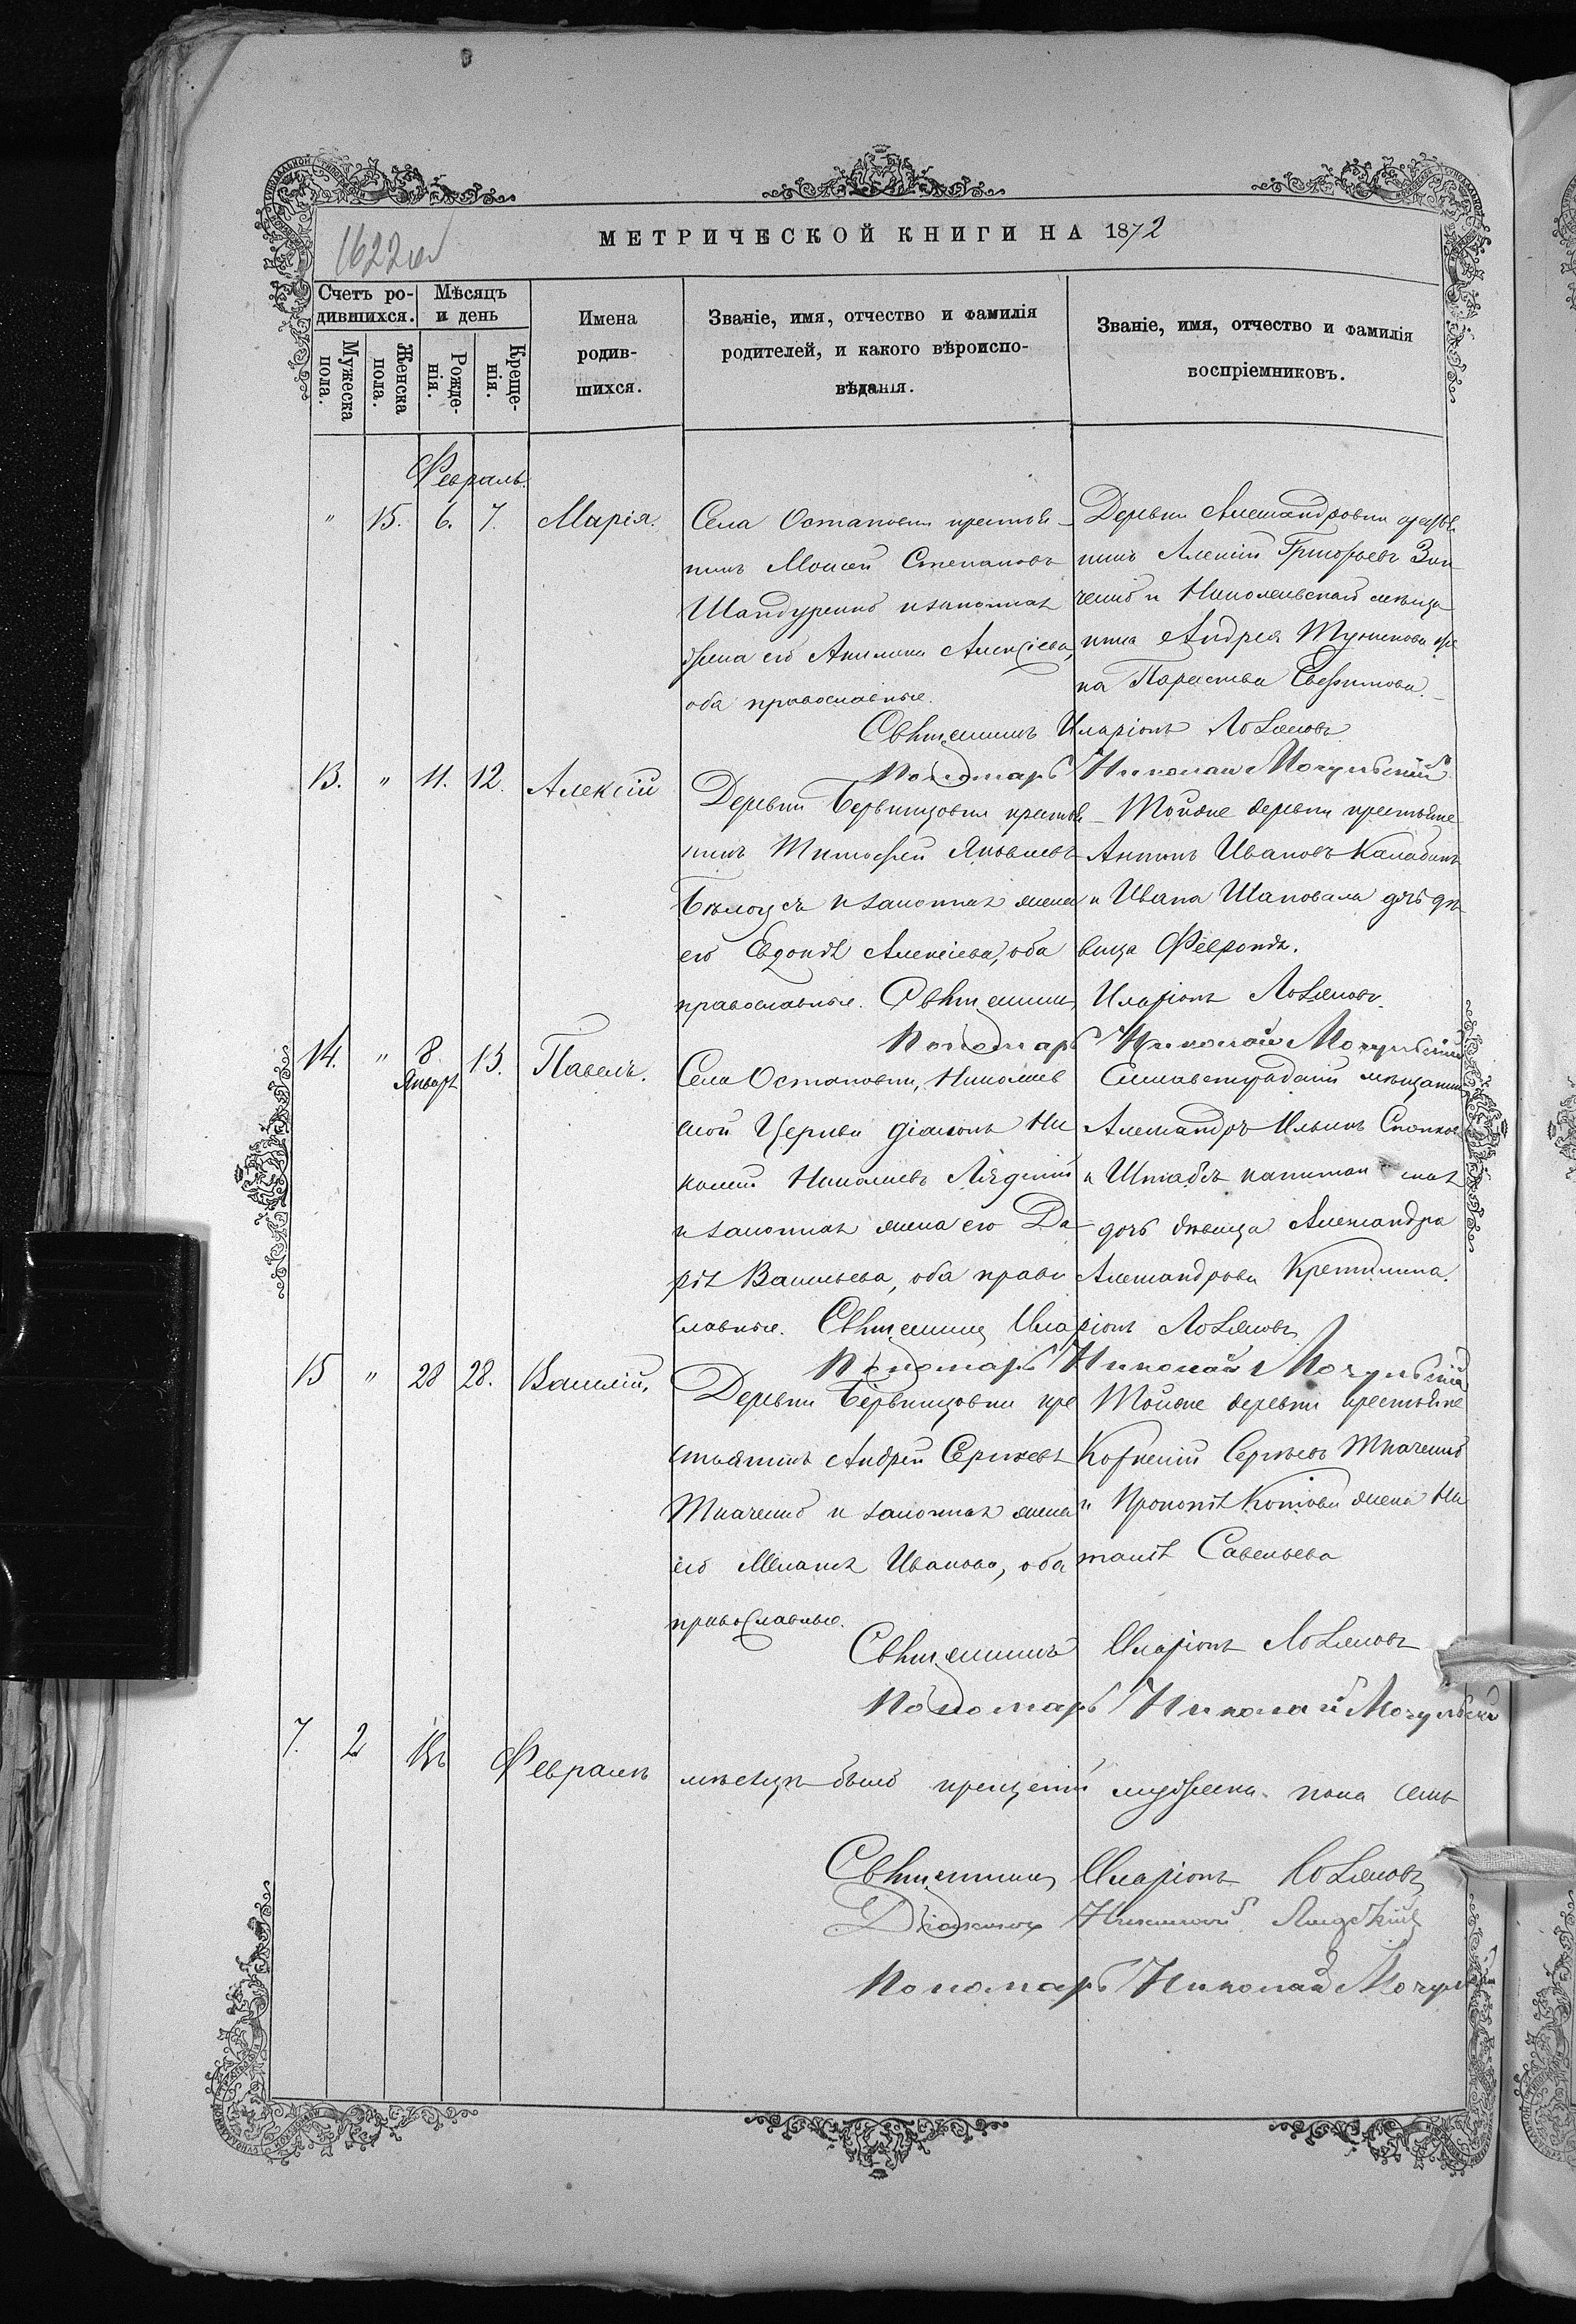 МЕТРИЧЕСКОЙ КНИГИ НА 1872
1622
Счетъ ро-
дившихся.
Мѣсяцъ
и день
Мужеска
пола.
Женска
пола.
Рожде-
нія.
Креще-
нія.
Имена
родив-
шихся.
Званіе, имя, отчество и фамилія
родителей, и какого вѣроиспо-
вѣданія.
Званіе, имя, отчество и фамилія
воспріемниковъ.
Февраль.
" 15. 6. 7. Марія.
Села Остаповки крестья-
нинъ Моисей Степановъ
Шандуренко и законная
жена его Акилина Алексіева,
оба православные.
Деревни Александровки
нинъ Алексій Григорьевъ Зин
ченко и Николаевскаго мѣща
нина Андрея же
на Параскева Евфимова.
Священникъ Иларіонъ Лобачовъ
Пономарь Николай Мочульскій
13. " 11. 12. Алексій
Деревни крестья-
нинъ Тимофей Яковлевъ
Бѣлоусъ и законная жена
его Евдокія Алексіева, оба
православные.
Тойже деревни крестьяне
Антонъ Ивановъ
и Ивана Шаповала дочь дѣ
вица Февронія.
Священникъ Иларіонъ Лобачовъ.
Пономарь Николай Мочульскій
14. " 8 Январь 13. Павелъ.
Села Остаповки, Николаев
ской Церкви діаконъ Ни
колай Николаевъ Лядскій
и законная жена его Да
рія Васильева, оба право
славные.
Елисаветградскій мѣщанинъ
Александръ Ильинъ
и Штабсъ капитан ская
дочь дѣвица Александра
Александрова
Священникъ Иларіонъ Лобачовъ
Пономарь Николай Мочульскій
15 " 28 28. Василій.
Деревни кре
стьянинъ Андрей Сергіевъ
Ткаченко и законная жена
его Меланія Иванова, оба
православные.
Тойже деревни крестьяне
Корнелій Сергіевъ Ткаченко
и Прокопія Котова жена На
талія Савельева
Священникъ Иларіонъ Лобачовъ
Пономарь Николай Мочульскій
7. 2 Въ Февралѣ мѣсяцѣ было крещеній мужеска пола семь
Священникъ Иларіонъ Лобачовъ
Діаконъ Николай Лядскій
Пономарь Николай Мочульскій